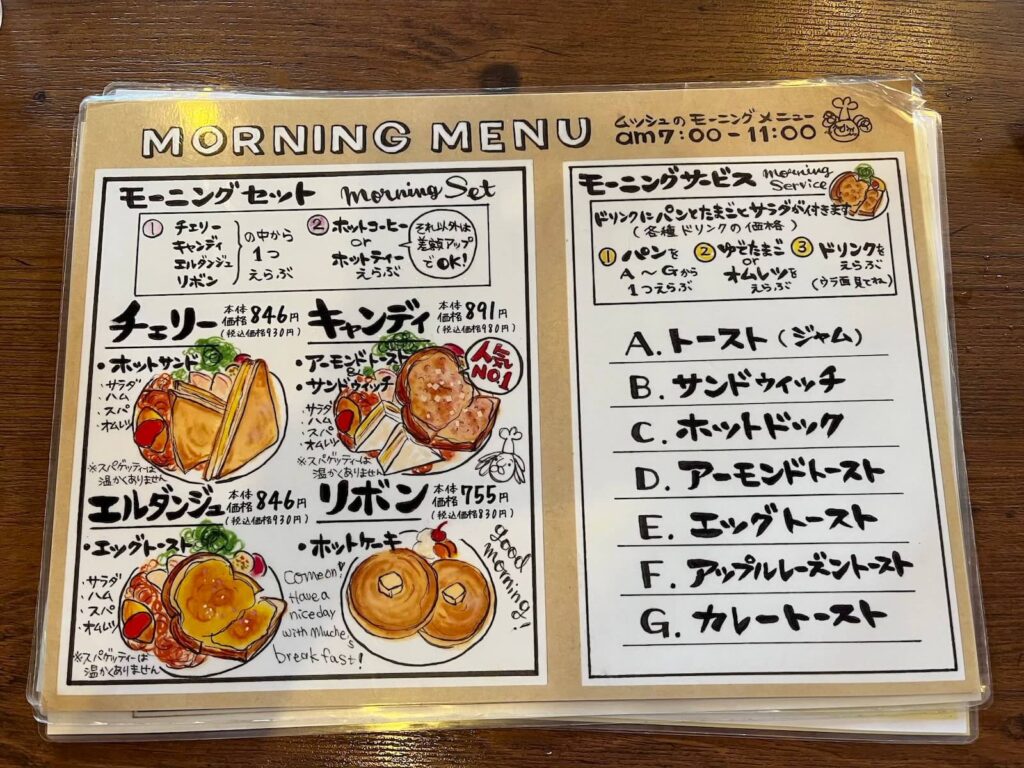 MORNING MENU
ムッシュのモーニングメニュー
am7:00-11:00
モーニングセット Morning Set
① チェリー
キャンディ
エルダンジュ
リボン
の中から
1つ
えらぶ
② ホットコーヒー
or
ホットティー
えらぶ
それ以外は
差額アップ
でOK!
チェリー 本体価格846円
(税込価格930円)
・ホットサンド
・サラダ
・ハム
・スパ
・オムレツ
※スパゲッティーは
温かくありません
キャンディ 本体価格891円
(税込価格980円)
・アーモンドトースト
&
サンドウィッチ
・サラダ
・ハム
・スパ
・オムレツ
人気
NO.1
※スパゲッティーは
温かくありません
エルダンジュ 本体価格846円
(税込価格930円)
・エッグトースト
・サラダ
・ハム
・スパ
・オムレツ
※スパゲッティーは
温かくありません
リボン 本体価格755円
(税込価格830円)
・ホットケーキ
Come on!
Have a
nice day
with Muche's
breakfast!
good
morning!
モーニングサービス Morning
Service
ドリンクにパンとたまごとサラダが付きます
(各種ドリンクの価格)
① パンを
A〜Gから
1つえらぶ
② ゆでたまご
or
オムレツを
えらぶ
③ ドリンクを
えらぶ
(ウラ面見てね)
A. トースト(ジャム)
B. サンドウィッチ
C. ホットドック
D. アーモンドトースト
E. エッグトースト
F. アップルレーズントースト
G. カレートースト